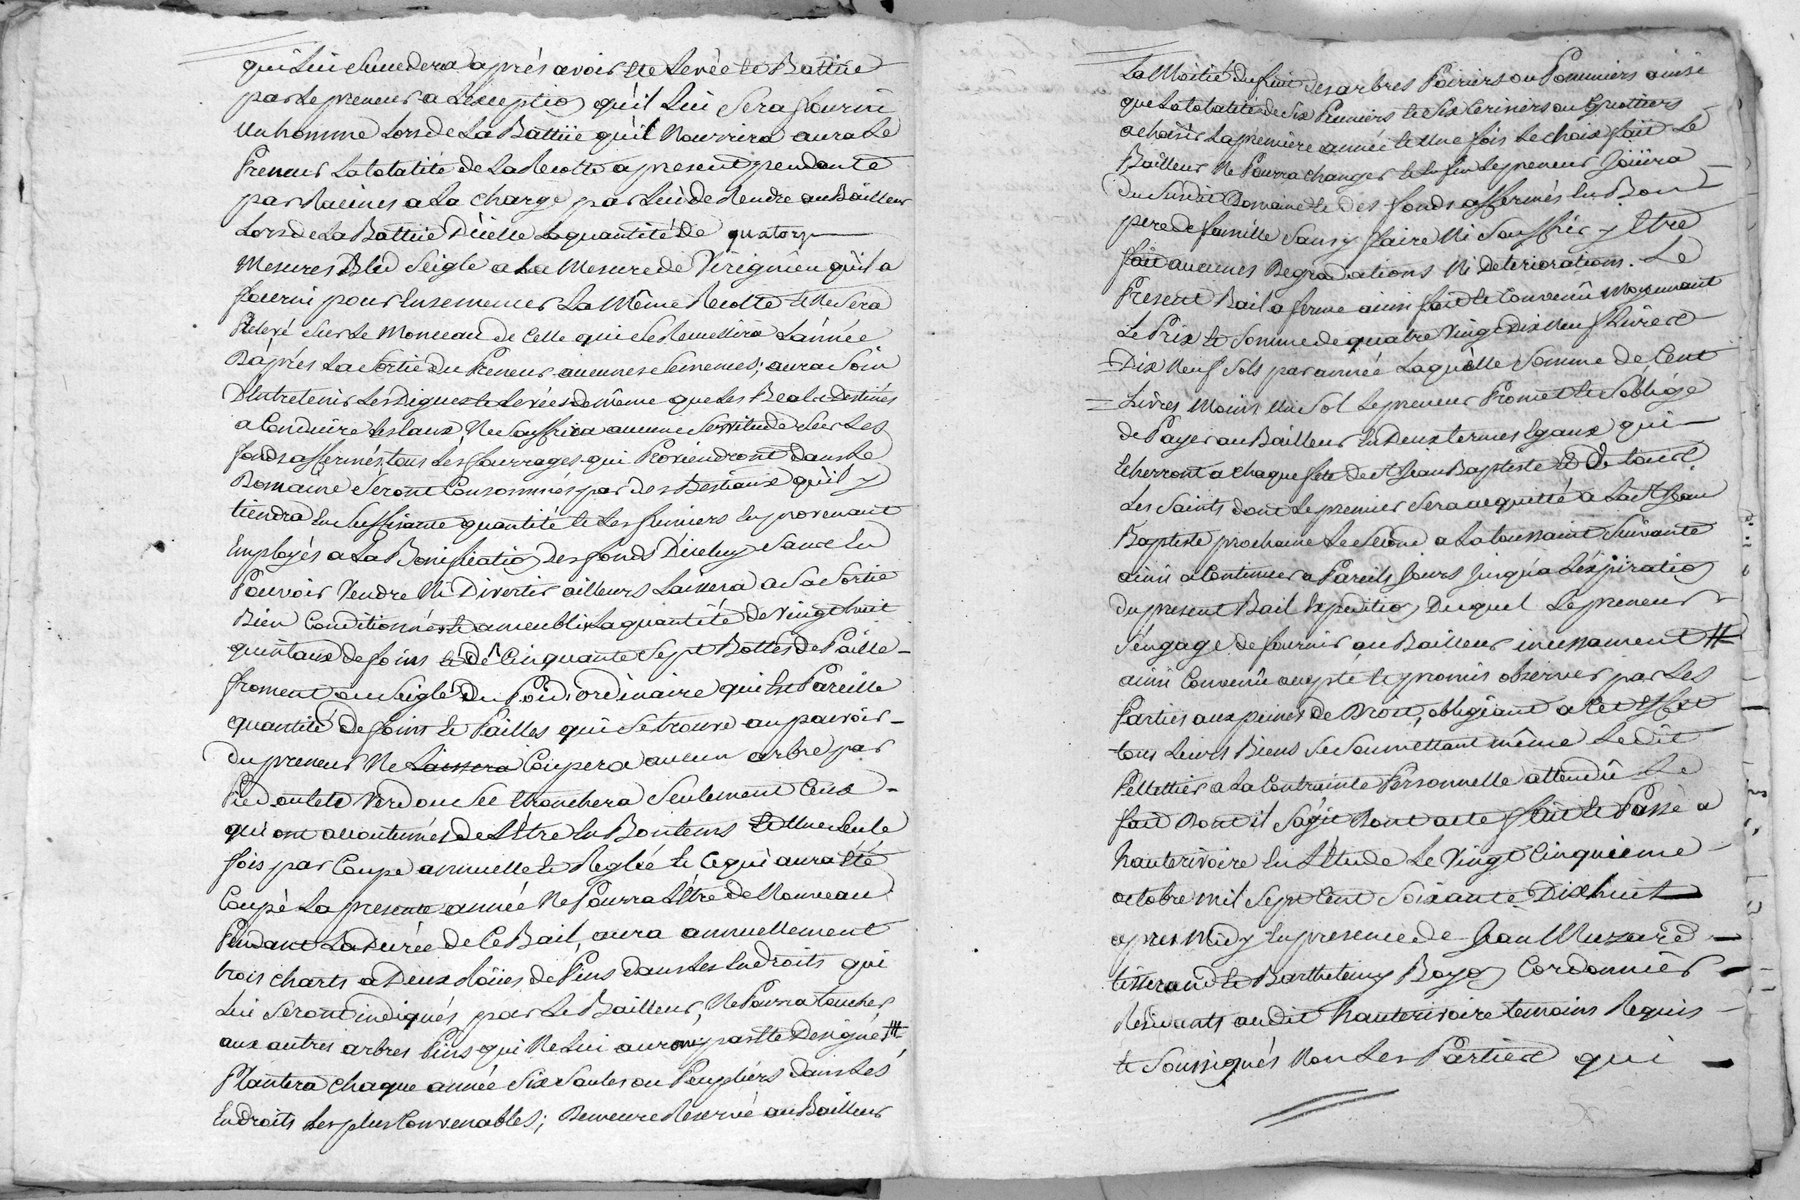 qui Lui Succedera après avoir été Levée et Battüe
par Le preneur a Léxception qu'il Lui Sera fourni
Un homme Lors de La Battüe qu'il Nourrira aura Le
Preneur La totalité de La Recolte a present pendante
par Racines a La charge par Lui de Rendre au Bailleur
Lors de La Battüe D'icelle La quantité De quatorze
Mesures Bled Seigle a La Mesure de Virignieu qu'il a
fourni pour Ensemencer La Même Recolte et Ne Sera
Relevé Sur Le Monceau de Celle qui Se Remettra L'année
D'après La Sortie du Preneur aucunes Semences; aura Soin
D'Entretenir Les Digues et Levées de même que Les Beals Destinés
a Conduire Les Eaux, Ne Souffrira aucune Servitude Sur Les
fonds affermés, tous Les fourrages qui Proviendront dans Le
Domaine Seront Consommés par des Bestiaux qu'il y
tiendra En Suffisante quantité et Les fumiers En provenant
Employés a La Bonification des fonds D'iceluy Sans En
Pouvoir Vendre Ni Divertir ailleurs Laissera a Sa Sortie
Bien Conditionnés et ameublis La quantité de Vingt huit
quintaux de foins et de Cinquante Sept Bottes de Paille
froment ou Seigle Du Poids ordinaire qui Est Pareille
quantité de foins et Pailles qui Se trouve au pouvoir
du preneur Ne Laissera Coupera aucun arbre par
Pied ou tete Verd ou Sec Ebranchera Seulement Ceux
qui ont accoutumés de L'Etre En Bon tems et Une Seule
fois par Coupe annuelle et Reglée et Ce qui aura été
Coupé La presente année Ne Pourra L'Etre de Nouveau
Pendant La Durée de Ce Bail, aura annuellement
trois charts a Deux Roües de Pins dans Les Endroits qui
Lui Seront indiqués par Le Bailleur, Ne Pourra toucher
aux autres arbres Pins qui Ne Lui auront pas été Designé #
Plantera chaque année Six Saules ou Peupliers dans Les
Endroits Les plus Convenables; Demeure Reservé au Bailleur
La Moitié du fruit des arbres Poiriers ou Pommiers ainsi
que La totalité de Six Pruniers et Six Cerisiers ou Griottiers
a choisir La premiere année et Une fois Le choix fait Le
Bailleur Ne Pourra changer et Enfin Le preneur Joüira
Du Susdit Domaine et des fonds affermés En Bon
pere de famille Sans y faire Ni Souffrir y Etre
fait aucunes Degradations Ni Deteriorations. Le
Present Bail a ferme ainsi fait et Convenû Moyennant
Le Prix et Somme de quatre Vingt Dix Neuf Livres
Dix Neuf Sols par année Laquelle Somme de Cent
Livres Moins Un Sol Le preneur Promet et S'obligé
de Payer au Bailleur En Deux termes Egaux qui
Echerront a chaque fete de St Jean Baptiste et de tous
Les Saints dont Le premier Sera acquitté a La St Jean
Baptiste prochaine Le Second a La toussaint Suivante
ainsi a Continuer a Pareils Jours Jusqu'a L'éxpiration
du present Bail Expedition Duquel Le preneur
S'engage de fournir au Bailleur incessament #
ainsi Convenû accepté et promis observer par Les
Parties aux peines de Droit, obligeant a Cet Effet
tous Leurs Biens Se Soumettant même Ledit
Pellettier a La Contrainte Personnelle attendû Le
fait Dont il S'agit Dont acte fait et Passé a
hauterivoire En L'Etude Le Vingt Cinquieme
octobre mil Sept Cent Soixante Dix huit
apres Midy En presence de Jean Muzard
tisserand et Barthelemy Boyo Cordonnier
Residants audit hauterivoire temoins Requis
et Soussignés Non Les Parties qui